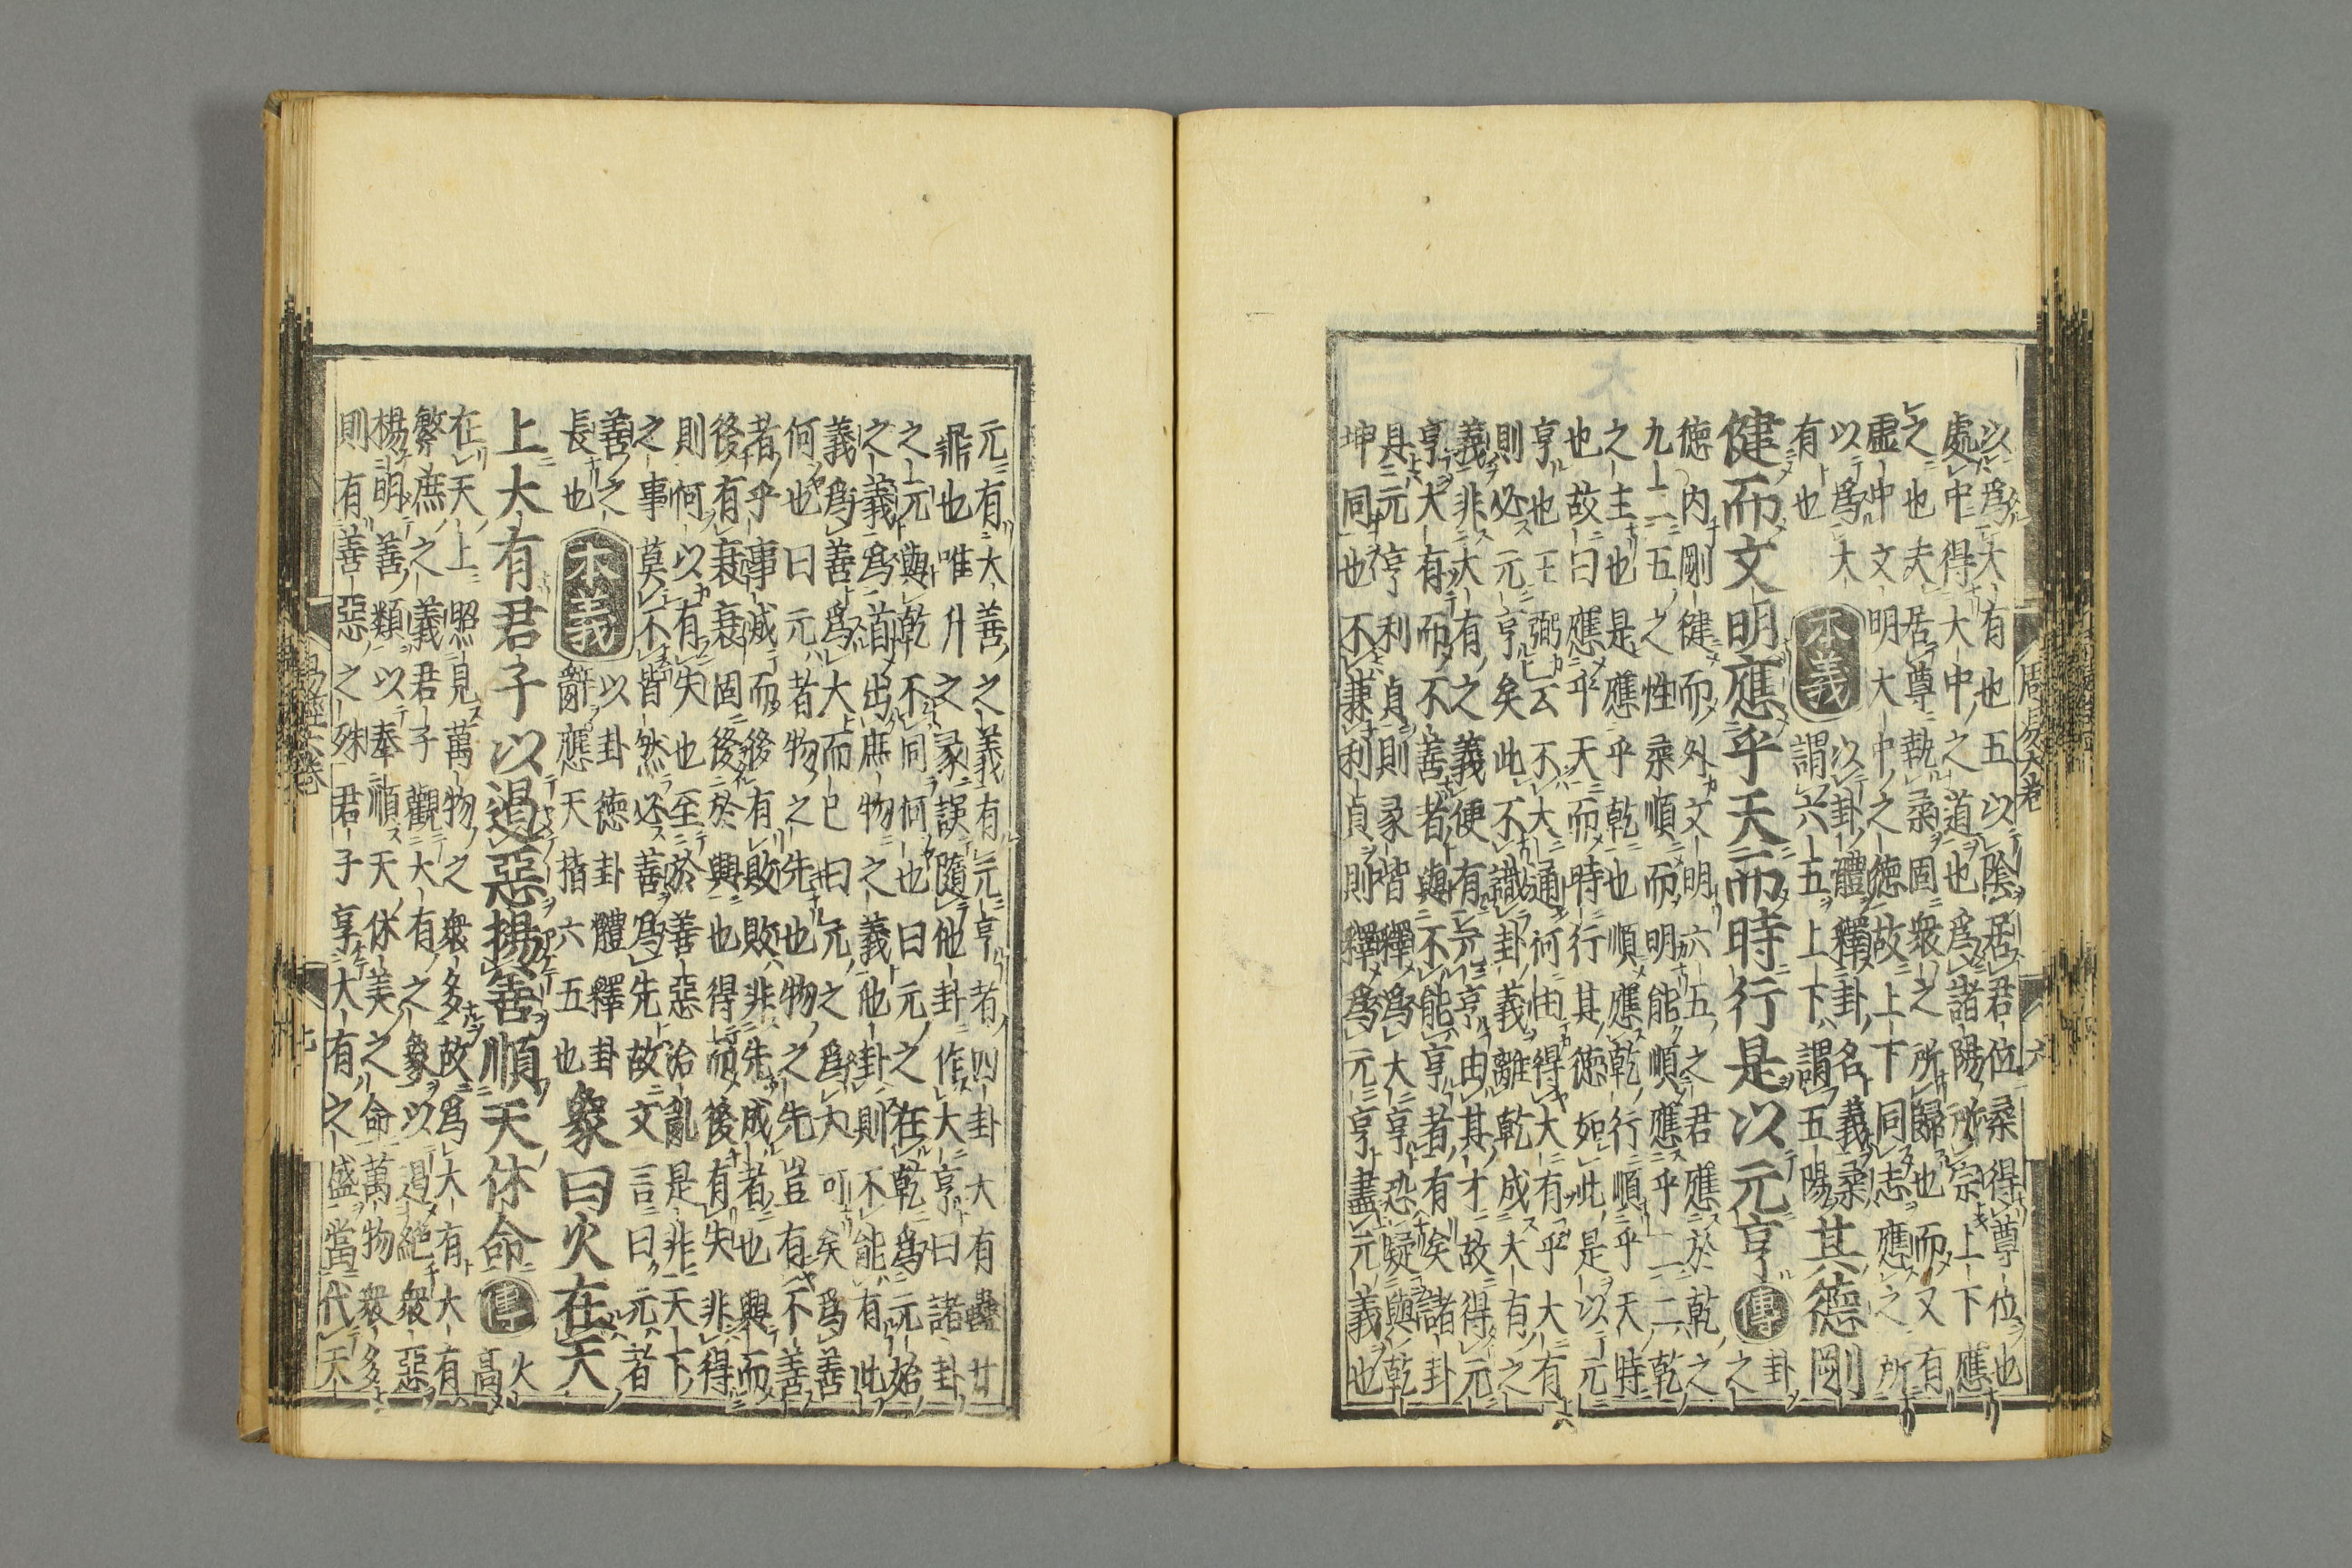 以爲大有也五以陰居君位柔得尊位也
處中得大中之道也爲諸陽所宗上下應
之也夫居尊執柔固衆之所歸也而又有
虛中文明大中之德故上下同志應之所
以爲大有也 本義 以卦體釋卦名義柔
謂六五上下謂五陽 其德剛
健而文明應乎天而時行是以元亨 傳 卦之
德内剛健而外文明六五之君應於乾之
九二五之性柔順而明能順應乎二二乾
之主也是應乎乾也順應乾行順乎天時
也故曰應乎天而時行其德如此是以元
亨也王弼云不大通何由得大有乎大有
則必元亨矣此不識卦義離乾成大有之
義非大有之義便有元亨由其才故得元
亨大有而不善者與不能亨者有矣諸卦
具元亨利貞則彖皆釋爲大亨恐疑與乾
坤同也不兼利貞則釋爲元亨盡元義也
周易大卷
六
元有大善之義有元亨者四卦大有蠱
鼎也唯升之彖誤隨他卦作大亨曰諸卦
之元與乾不同何也曰元之在乾爲元始
之義爲首出庶物之義他卦則不能有此
義爲善爲大而已曰元之爲大可矣爲善
何也曰元者物之先也物之先豈有不善
者乎事成而後有敗敗非先成者也興而
後有衰衰固後於興也得而後有失非得
則何以有失也至於善惡治亂是非天下
之事莫不皆然必善爲先故文言曰元者
善之長也 本義 以卦德卦體釋卦
辭應天指六五也 象曰火在天
上大有君子以遏惡揚善順天休命 傳 火高
在天上照見萬物之衆多故爲大有大有
繁庶之義君子觀大有之象以遏絶衆惡
揚明善類以奉順天休美之命萬物衆多
則有善惡之殊君子享大有之盛當代天